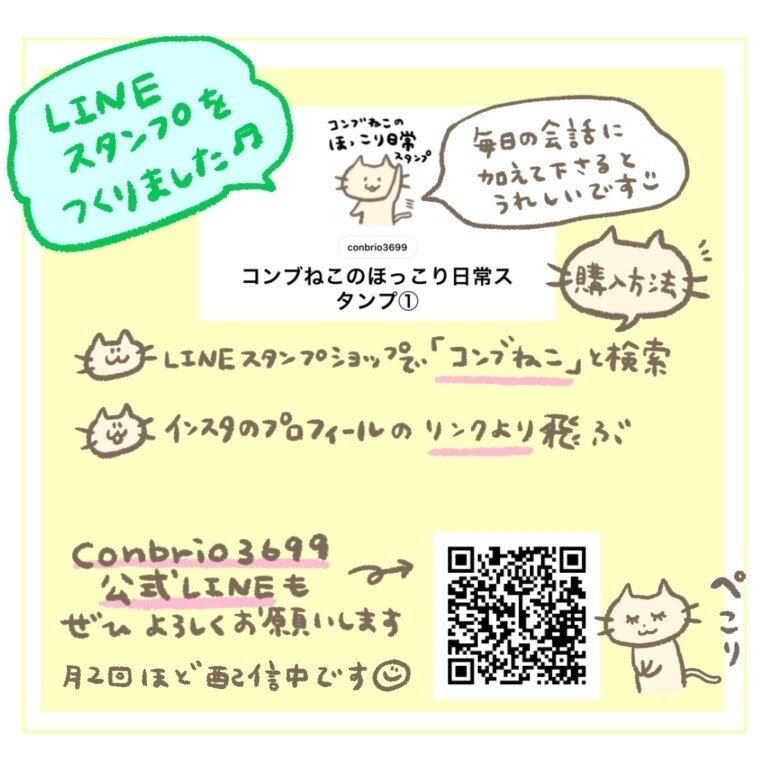 LINE
スタンプを
つくりました♬
コンブねこの
ほっこり日常
スタンプ
毎日の会話に
加えて下さると
うれしいです
conbrio3699
コンブねこのほっこり日常ス
タンプ①
購入方法
LINEスタンプショップで「コンブねこ」と検索
インスタのプロフィールのリンクより飛ぶ
conbrio3699
公式LINEも
ぜひよろしくお願いします
月2回ほど配信中です
ぺこり